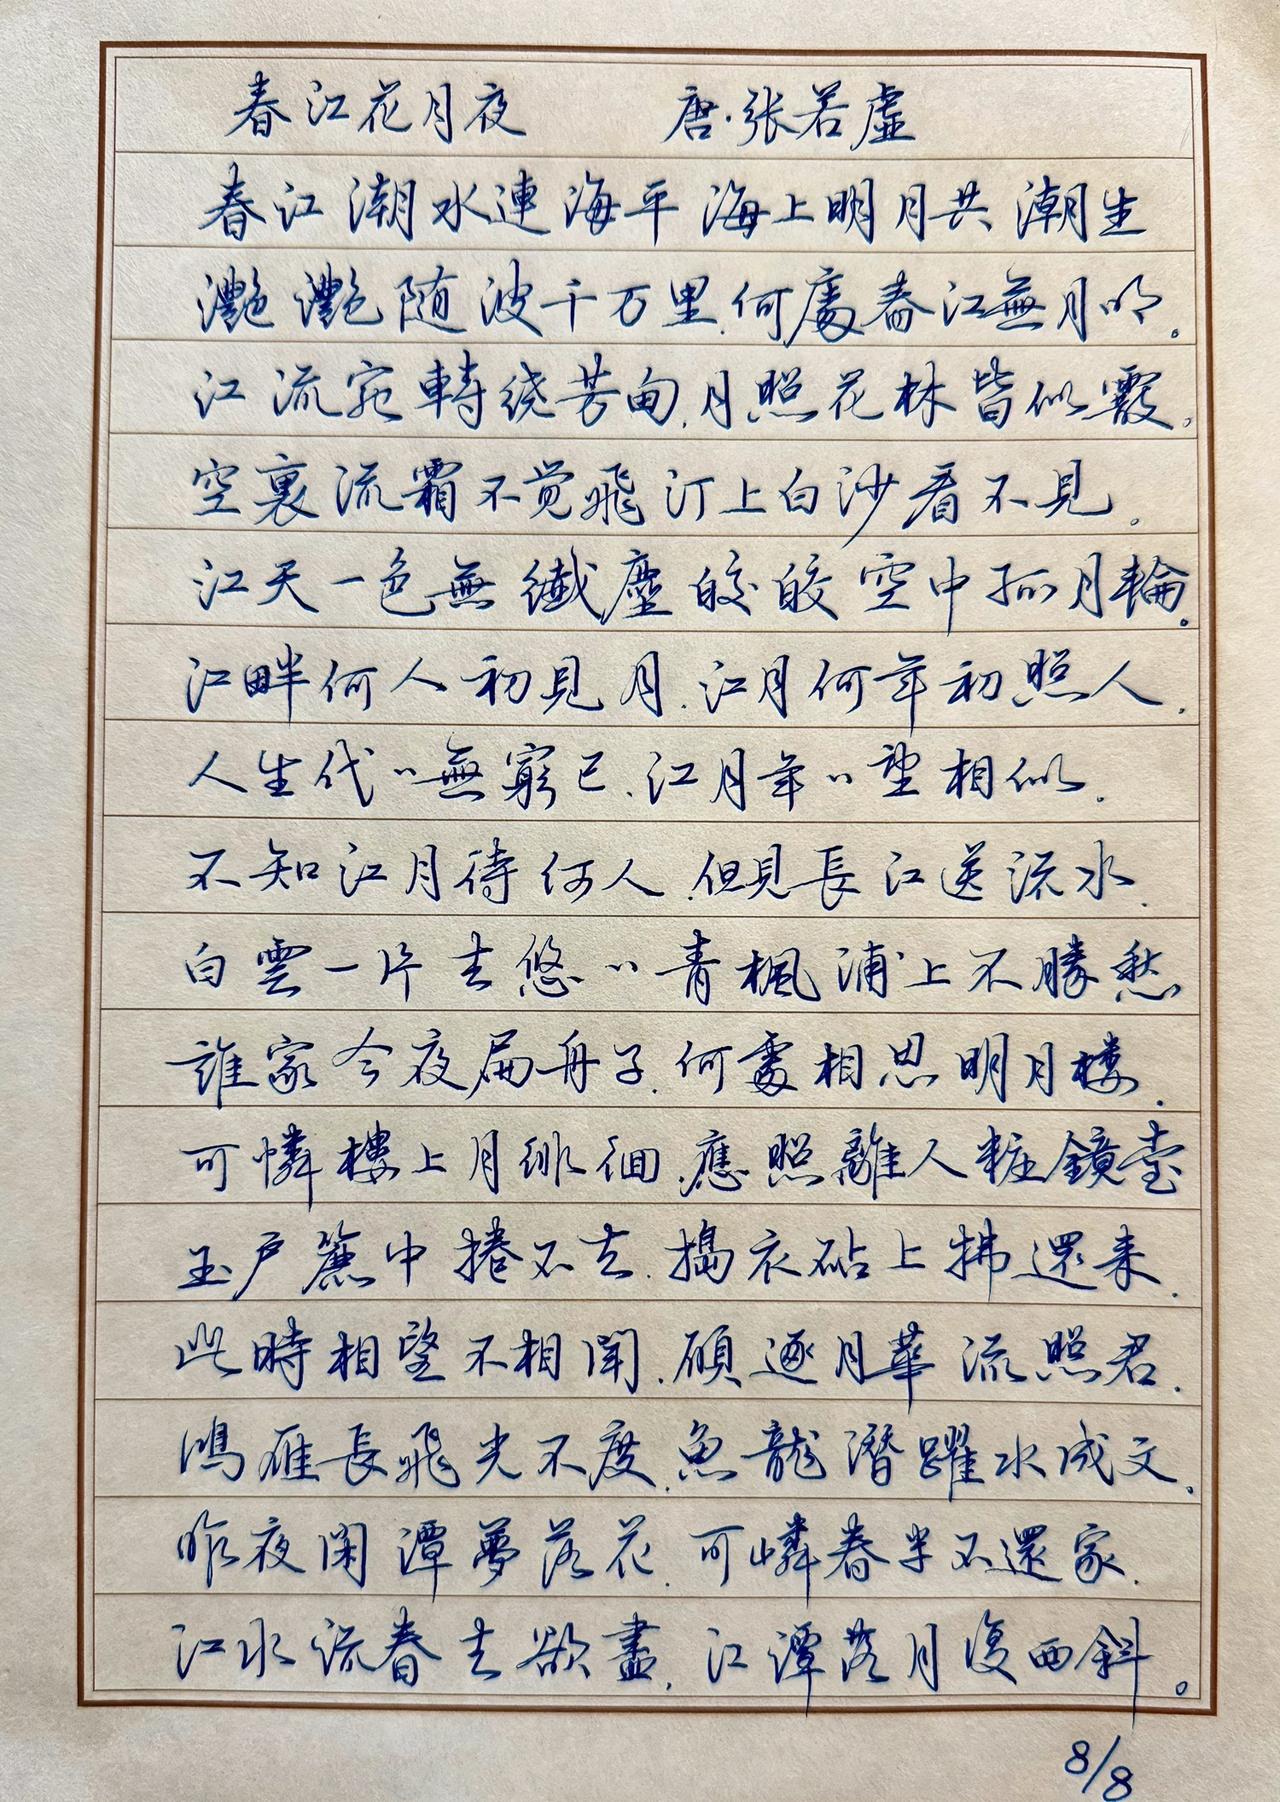 春江花月夜 唐·张若虚
春江潮水連海平 海上明月共潮生
灩灩随波千万里.何處春江無月明。
江流宛轉绕芳甸.月照花林皆似霰.
空裏流霜不觉飛 汀上白沙看不見。
江天一色無纖塵 皎皎空中孤月輪.
江畔何人初見月.江月何年初照人.
人生代〃無窮已.江月年〃望相似.
不知江月待何人.但見長江送流水.
白雲一片去悠〃青楓浦上不勝愁
誰家今夜扁舟子.何處相思明月楼.
可憐樓上月徘徊.應照離人粧鏡臺
玉户簾中捲不去.搗衣砧上拂還来.
此時相望不相聞.願逐月華流照君.
鴻雁長飛光不度.魚龍潛躍水成文.
昨夜闲潭夢落花.可憐春半不還家.
江水流春去欲盡.江潭落月復西斜。
8/8